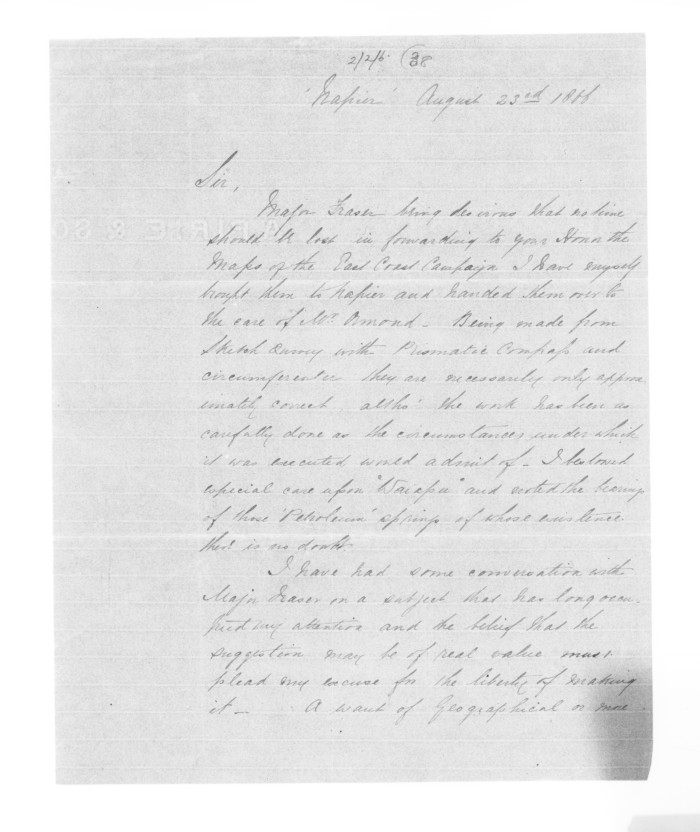 2/2/6 38
'Napier' August 23rd 1866
Sir,
Major Fraser being desirous that no time
should be lost in forwarding to your Honor the
Maps of the East Coast Campaign I have myself
brought them to Napier and handed them over to
the care of Mr Ormond _ Being made from
Sketch Survey with Prismatic Compass and
circumferenter they are necessarily only approx
imately correct, altho' the work has been as
carefully done as the circumstances under which
it was executed would admit of _ I bestowed
especial care upon "Waiapu" and noted the bearings
of those 'Petroleum' springs of whose existence
there is no doubt
I have had some conversation with
Major Fraser on a subject that has long occu
pied my attention and the belief that the
suggestion may be of real value must
plead my excuse for the liberty of making
it _ A want of Geographical or more